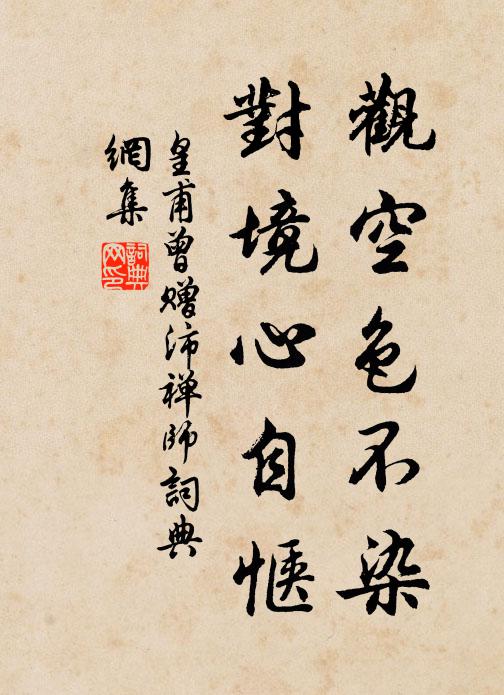 觀空色不染
對境心自愜
皇甫曾贈沛禪師詞典
網集
詞典網印